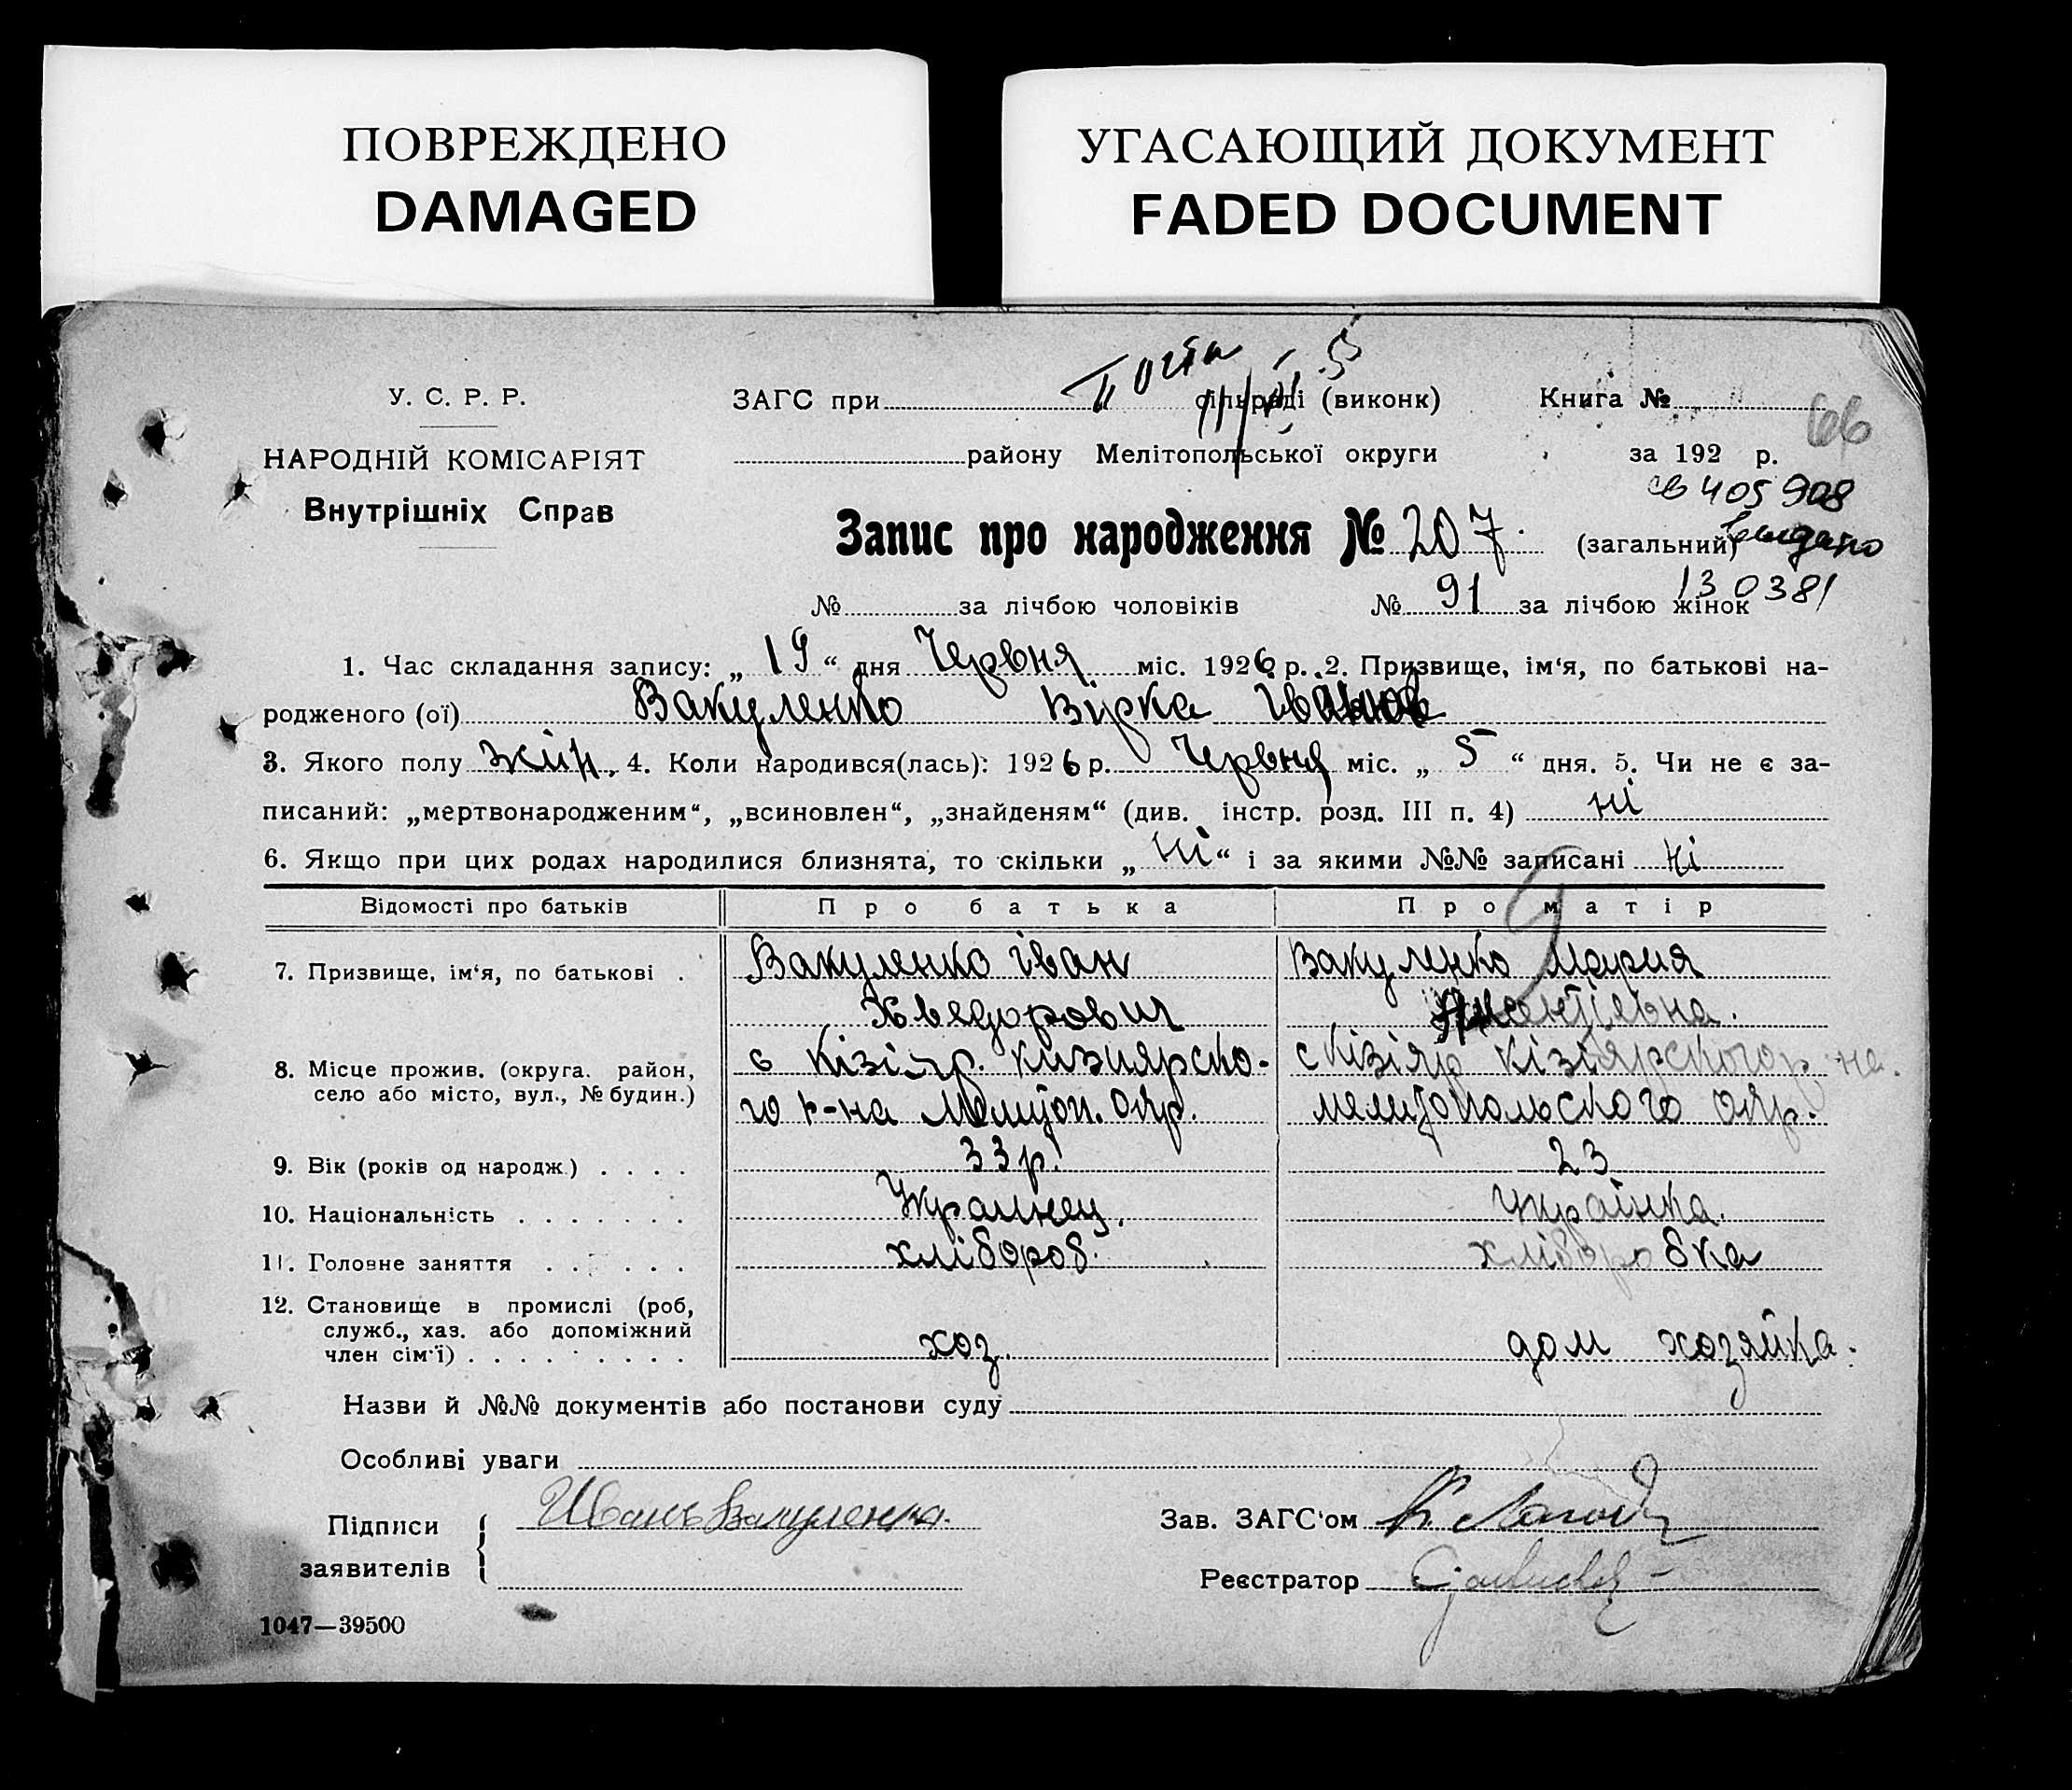 ПОВРЕЖДЕНО
DAMAGED
УГАСАЮЩИЙ ДОКУМЕНТ
FADED DOCUMENT
У. С. Р. Р.
НАРОДНІЙ КОМІСАРІЯТ
Внутрішніх Справ
ЗАГС при сільраді (виконк) Книга №
66
району Мелітопольської округи за 192 р.
405908
Запис про народження № 207. (загальний) видано
130381
№ за лічбою чоловіків № 91 за лічбою жінок
1. Час складання запису: „ 19 “ дня Червня міс. 1926 р. 2. Призвище, ім‘я, по батькові на-
родженого (ої) Вакуленко Вірка Іванов
3. Якого полу жін. 4. Коли народився(лась): 1926 р. Червня міс. „ 5 “ дня. 5. Чи не є за-
писаний: „мертвонародженим“, „всиновлен“, „знайденям“ (див. інстр. розд. III п. 4) ні
6. Якщо при цих родах народилися близнята, то скільки „ ні “ і за якими №№ записані ні
Відомості про батьків Про батька Про матір
7. Призвище, ім‘я, по батькові . Вакуленко Іван Вакуленко Мария
Хведорович
8. Місце прожив. (округа. район, село або місто, вул., № будин.)
с Кізіяр. Кизиярско- с Кізіяр Кізіярского р на.
го р-на Мелитоп. окр. Мелитопольского окр.
9. Вік (років од народж.) . . . . 33 р. 23
10. Національність . . . . . . . Украинец. Українка.
11. Головне заняття . . . . . . хлібороб. хліборобка
12. Становище в промислі (роб,
служб., хаз. або допоміжний
член сім‘ї) . . . . . . . . . хоз. дом хозяйка.
Назви й №№ документів або постанови суду
Особливі уваги
Підписи заявителів Иванъ Вакуленко.
Зав. ЗАГС‘ом
Реєстратор
1047—39500